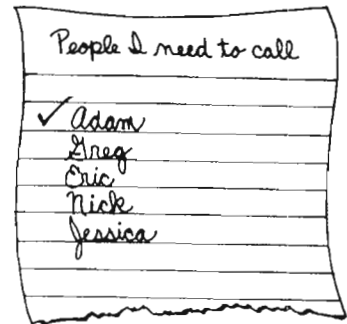 People I need to call
✓ Adam
Greg
Eric
Nick
Jessica